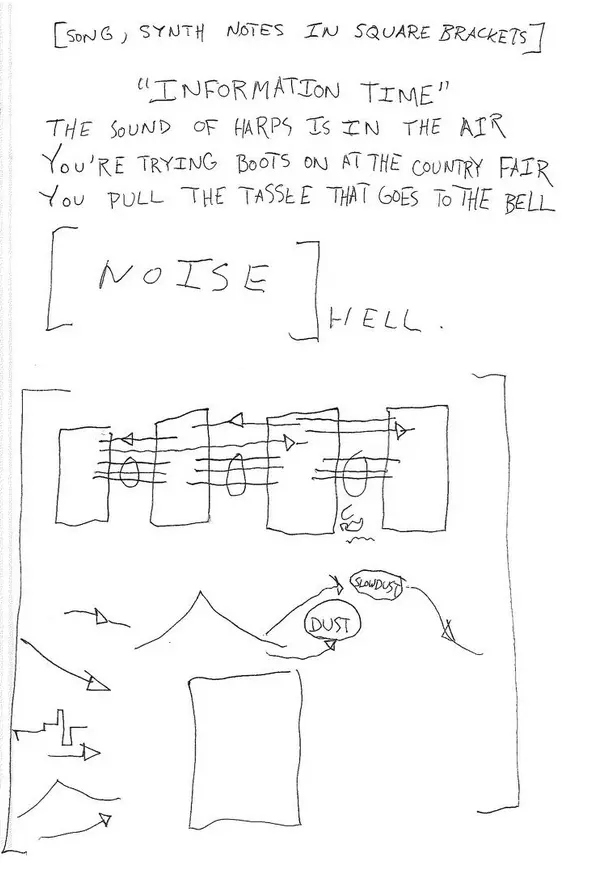 [SONG, SYNTH NOTES IN SQUARE BRACKETS]
"INFORMATION TIME"
THE SOUND OF HARPS IS IN THE AIR
YOU'RE TRYING BOOTS ON AT THE COUNTRY FAIR
YOU PULL THE TASSLE THAT GOES TO THE BELL
[NOISE] HELL.
SLOWDUST
DUST